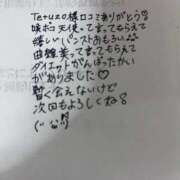 Tetuzo様口コミありがとう♡
咲ホコ天使って言てもらえて
嬉しいし パンストおもろい
曲線美って言ってもらえて
ダイエットがんばったかい
がありました♡
暫く会えないけど
次回もよろしくね